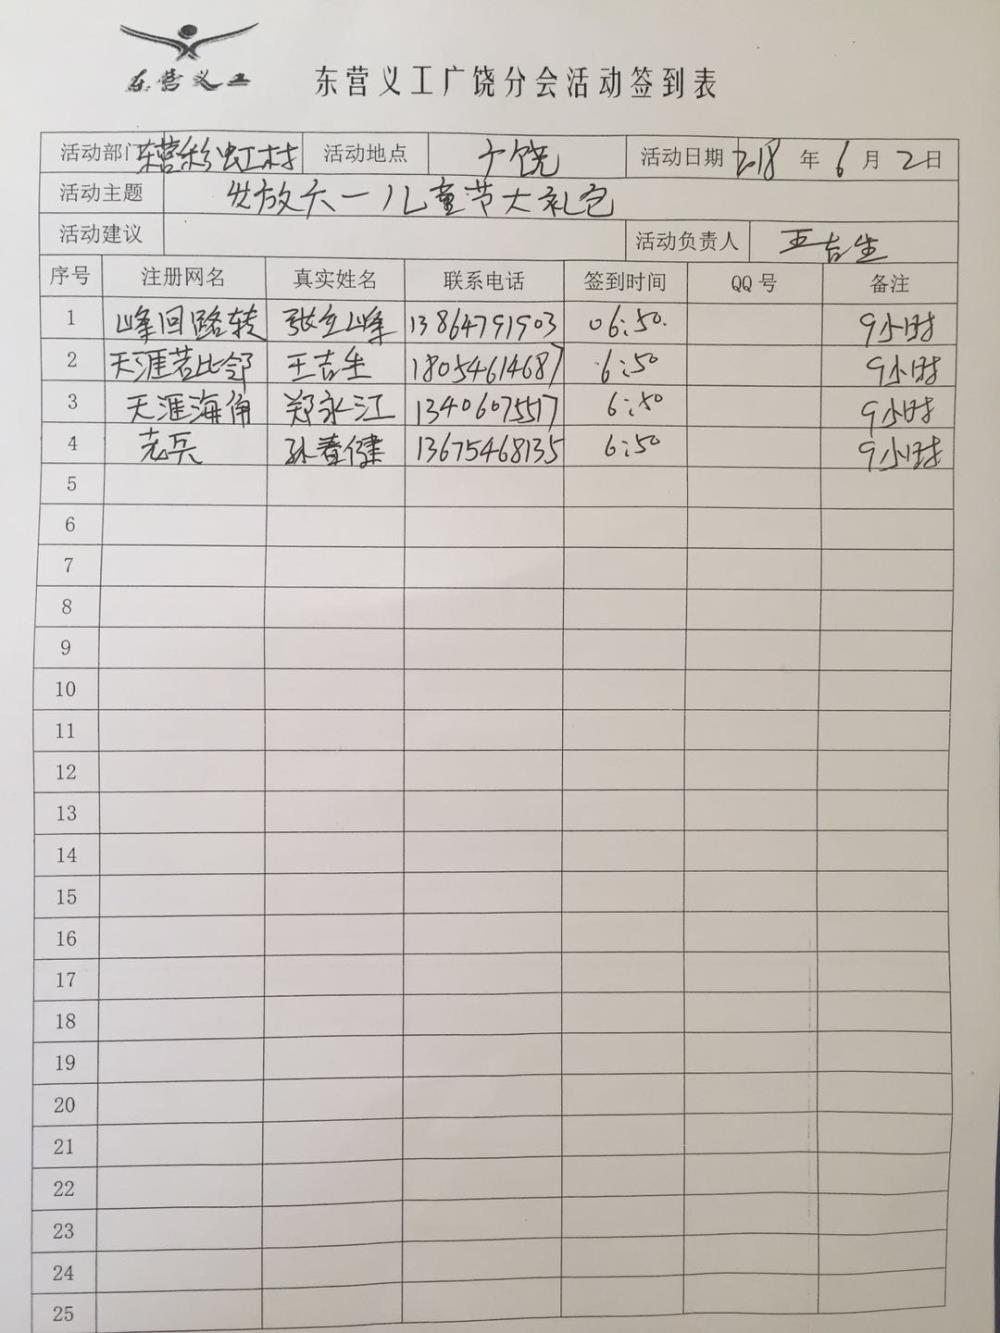 东营义工
东营义工广饶分会活动签到表
活动部门 东营彩虹村 活动地点 广饶 活动日期 2018 年 6 月 2 日
活动主题 发放六一儿童节大礼包
活动建议 活动负责人 王吉生
序号 注册网名 真实姓名 联系电话 签到时间 QQ号 备注
1 峰回路转 张立峰 13864791903 06:50. 9小时
2 天涯若比邻 王吉生 18054614687 6:50 9小时
3 天涯海角 郑永江 13406075517 6:50 9小时
4 老兵 孙春健 13675468135 6:50 9小时
5
6
7
8
9
10
11
12
13
14
15
16
17
18
19
20
21
22
23
24
25